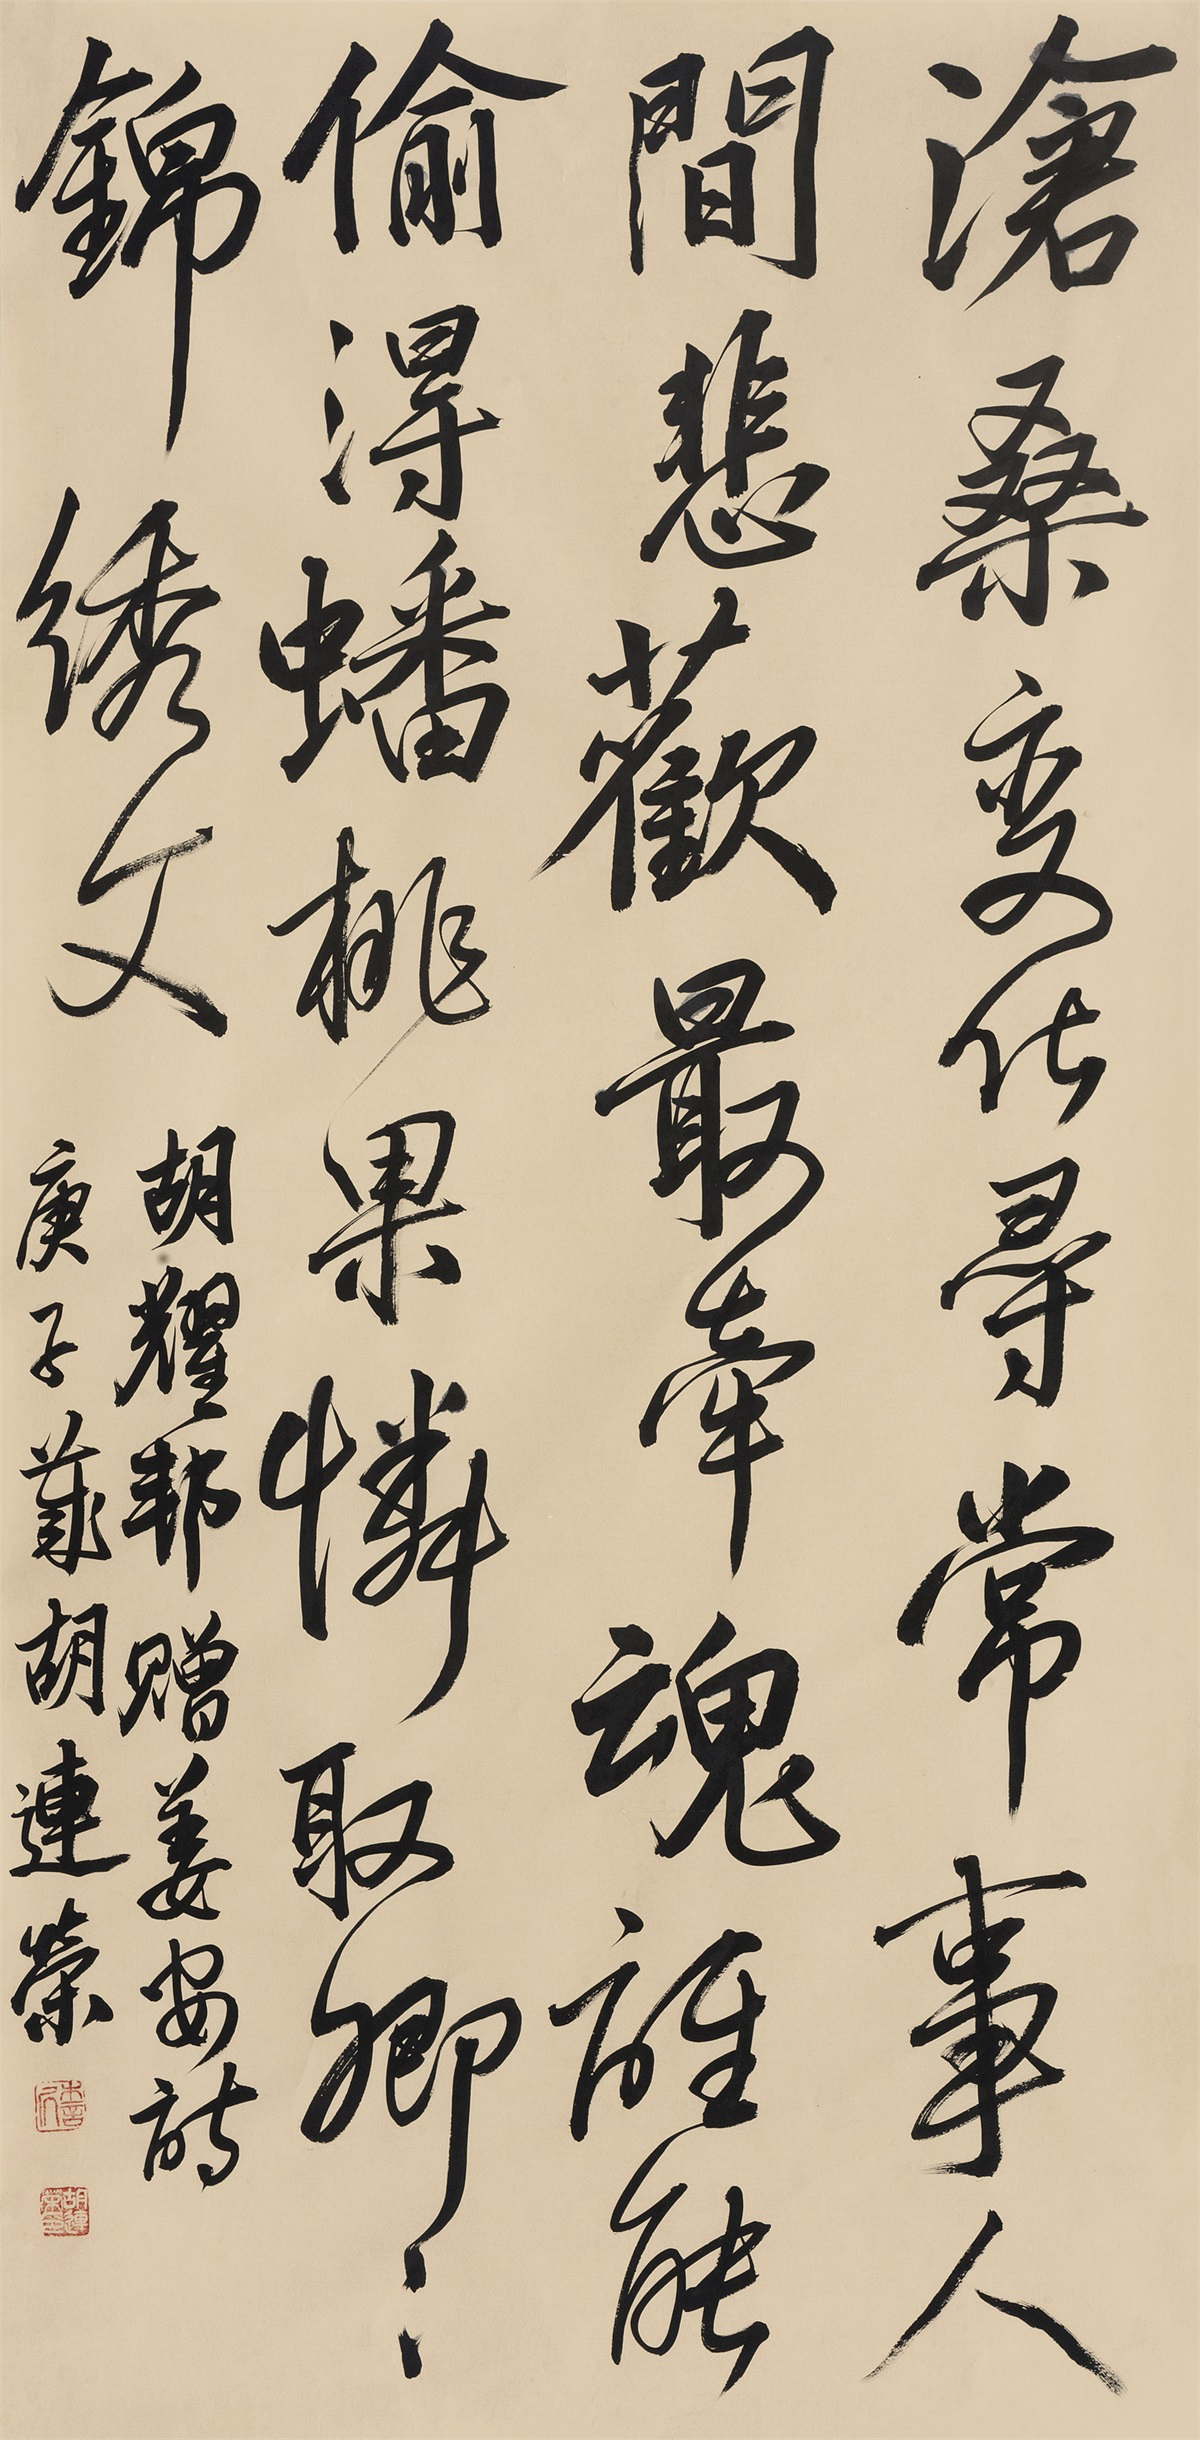 滄桑变化尋常事人
間悲歡最牽魂誰能
偷得蟠桃果憐取卿卿
錦绣文
胡耀邦赠姜安诗
庚子歲胡連榮